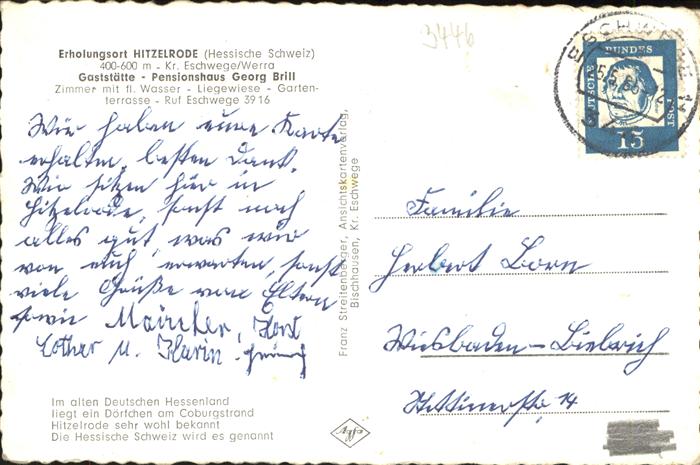 3446
Erholungsort HITZELRODE (Hessische Schweiz)
400-600 m - Kr. Eschwege/Werra
Gaststätte - Pensionshaus Georg Brill
Zimmer mit fl. Wasser - Liegewiese - Garten-
terrasse - Ruf Eschwege 3916
Wir haben eure Karte
erhalten, besten Dank.
Wir sitzen hier in
Hitzelrode, sonst noch
alles gut, was wir
von euch erwarten, sonst
viele Grüße von Eltern
sowie
Lothar u. Karin
Franz Streitenberger, Ansichtskartenverlag,
Bischhausen, Kr. Eschwege
DEUTSCHE BUNDESPOST
15
ESCHWEGE
Familie
Herbert Born
Wiesbaden-Biebrich
14
Im alten Deutschen Hessenland
liegt ein Dörfchen am Coburgstrand
Hitzelrode sehr wohl bekannt
Die Hessische Schweiz wird es genannt
Agfa